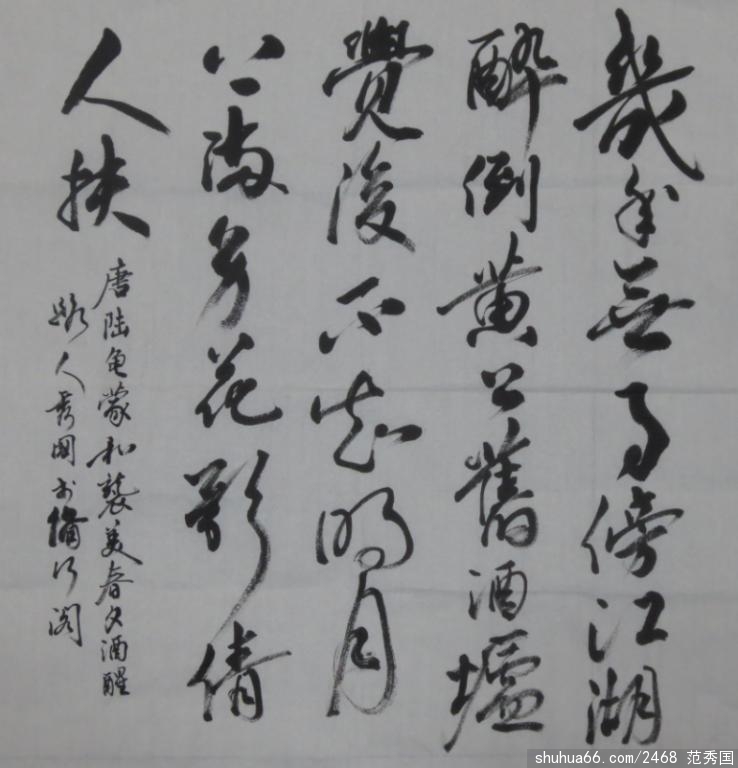 幾年無事傍江湖
醉倒黄公舊酒壚
覺後不知明月
上滿身花影倩
人扶
唐陆龟蒙和襲美春夕酒醒
人秀國 阁
shuhua66.com/2468 范秀国